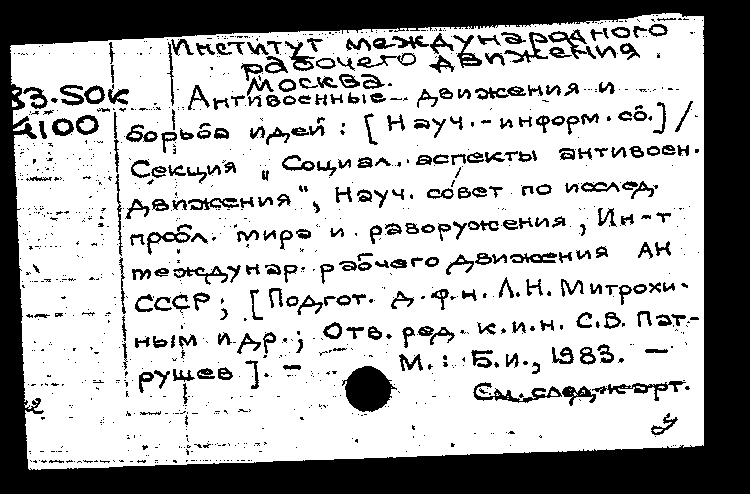 Институт международного
рабочего движения.
Москва.
83.SOK Антивоенные движения и
4100 борьба идей : [ Науч.-информ. сб.] /
Секция „ Социал. аспекты антивоен.
движения", Науч. совет по исслед.
пробл. мира и разоружения, Ин-т
междунар. рабчего движения АН
СССР ; [Подгот. д.ф.н. Л.Н. Митрохи-
ным и др. ; Отв. ред. к.и.н. С.В. Пат-
рушев ]. – М. : Б.и., 1983. –
См. след. карт.